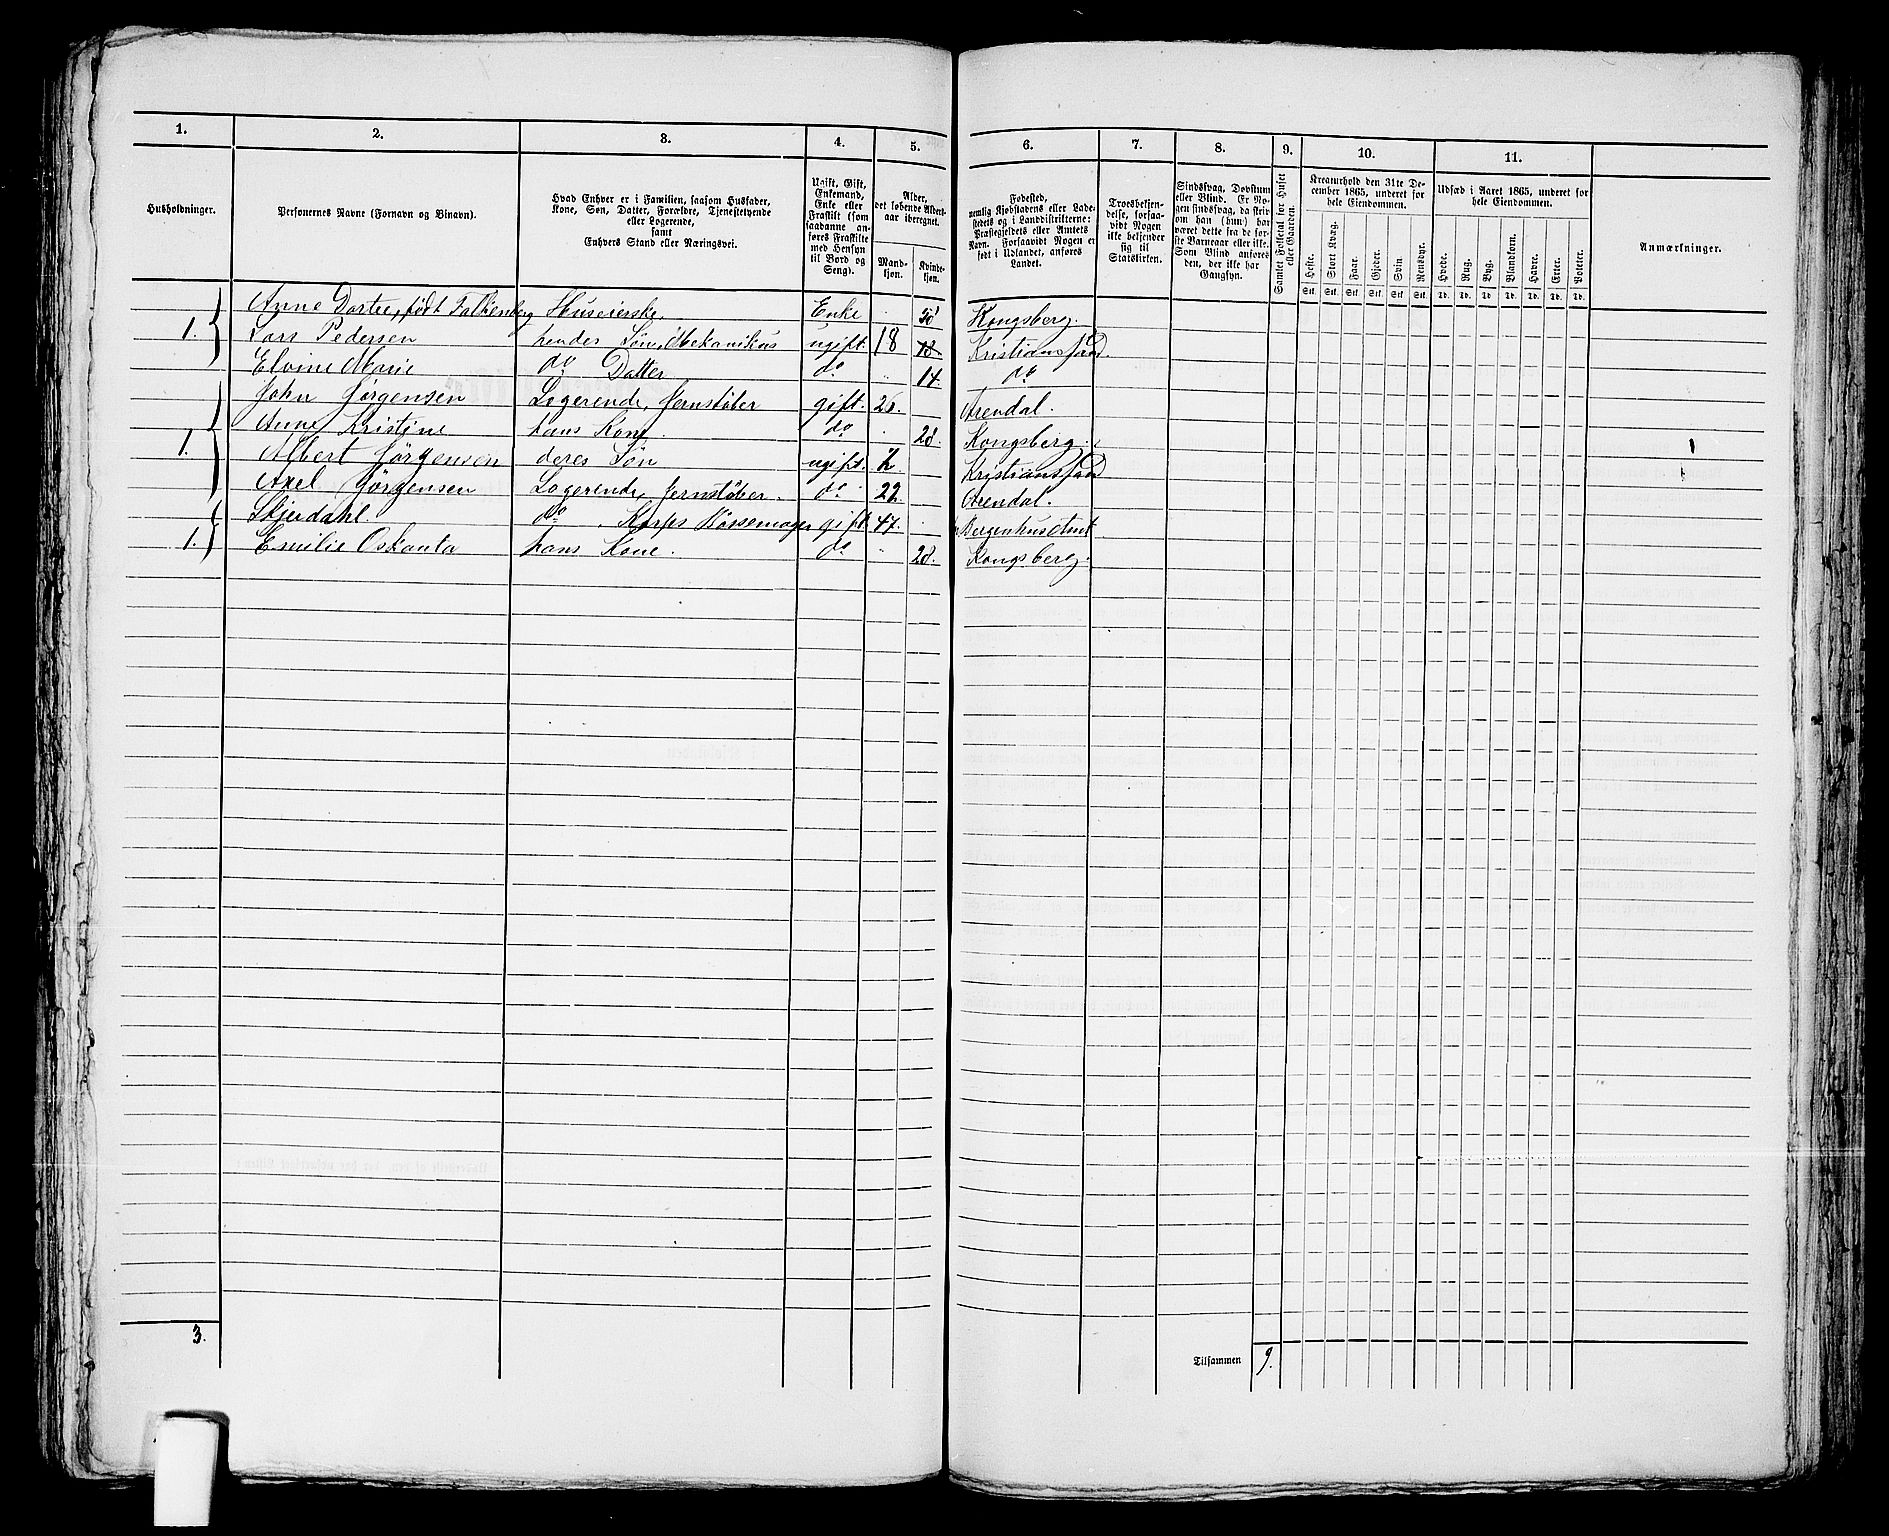 1. 2. 3. 4. 5. 6. 7. 8. 9. 10. 11.
Husholdninger.
Personernes Navne (Fornavn og Binavn).
Hvad Enhver er i Familien, saasom Husfader,
Kone, Søn, Datter, Forældre, Tjenestetyende
eller Logerende,
samt
Enhvers Stand eller Næringsvei.
Ugift, Gift,
Enkemand,
Enke eller
Fraskilt (som
saadanne an-
føres Fraskilte
med Hensyn
til Bord og
Seng).
Alder,
det løbende Alders-
aar iberegnet.
Mand-
kjøn.
Kvinde-
kjøn.
Fødested,
nemlig Kjøbstadens eller Lade-
stedets og i Landdistrikterne:
Præstegjeldets eller Amtets
Navn. Forsaavidt Nogen er
født i Udlandet, anføres
Landet.
Troesbekjen-
delse, forsaa-
vidt Nogen
ikke bekjender
sig til
Statskirken.
Sindssvag, Døvstum
eller Blind. Er No-
gen sindssvag, da skriv
om han (hun) har
været dette fra de før-
ste Barneaar eller ikke.
Som Blind anføres
den, der ikke har
Gangsyn.
Samlet Folketal for Huset
eller Gaarden.
Kreaturhold den 31te De-
cember 1865, underet for
hele Eiendommen.
Heste. Stort Kvæg. Faar. Gjeder. Svin Rensdyr.
Stk. Stk. Stk. Stk. Stk. Stk.
Udsæd i Aaret 1865, underet for
hele Eiendommen.
Hvede. Rug. Byg. Blandkorn. Havre. Erter. Poteter.
Td. Td. Td. Td. Td. Td. Td.
Anmærkninger.
Anne Dortee, født Falkenberg Huseierske. Enke Kongsberg.
1. Lars Pedersen hendes Søn, Mekanikus ugift. 18 18 Kristianssand.
Elvine Marie do Datter do 14 do
John Jørgensen Logerende, Jernstøber gift. Arendal.
Anne Kristine hans Kone. do 28. Kongsberg.
1. Albert Jørgensen deres Søn ugift. Kristianssand
Axel Jørgensen Logerende, Jernstøber. do 22. Arendal.
Skjerdahl. do. Korps Bøssemager gift. 47. Bergenhus Amt
1. Emilie Oskanta hans Kone. do 28. Kongsberg.
3.
Tilsammen 9.